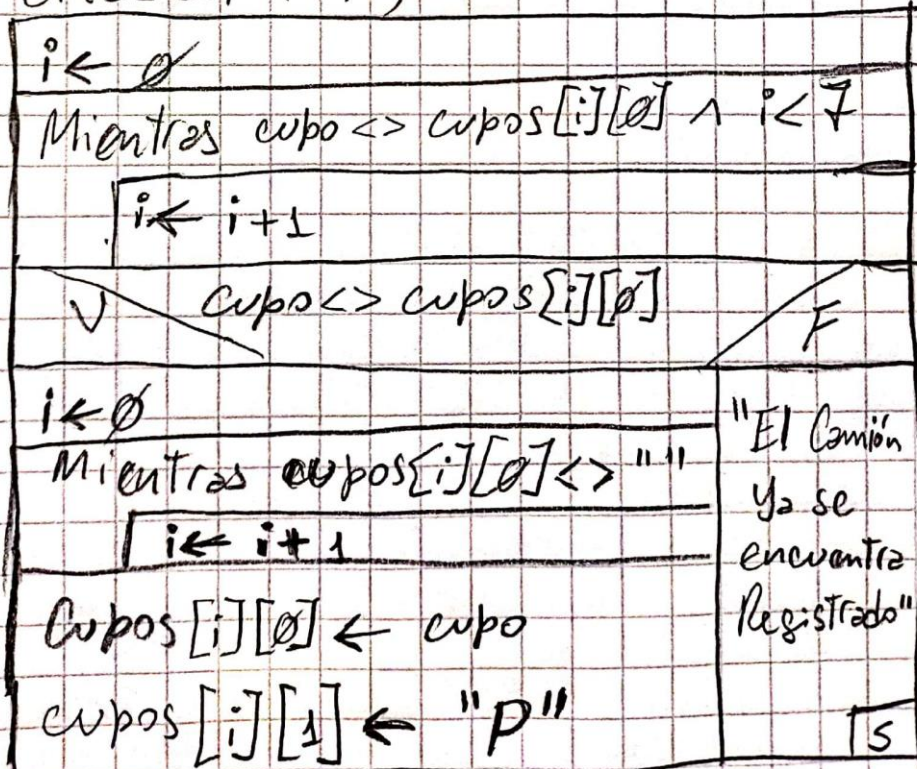 i ← Ø
Mientras cupo <> cupos[i][Ø] ∧ i < 7
i ← i + 1
cupo <> cupos[i][Ø]
V
F
i ← Ø
Mientras cupos[i][Ø] <> " "
i ← i + 1
Cupos[i][Ø] ← cupo
cupos[i][1] ← "P"
"El Camión
ya se
encuentra
Registrado"
S